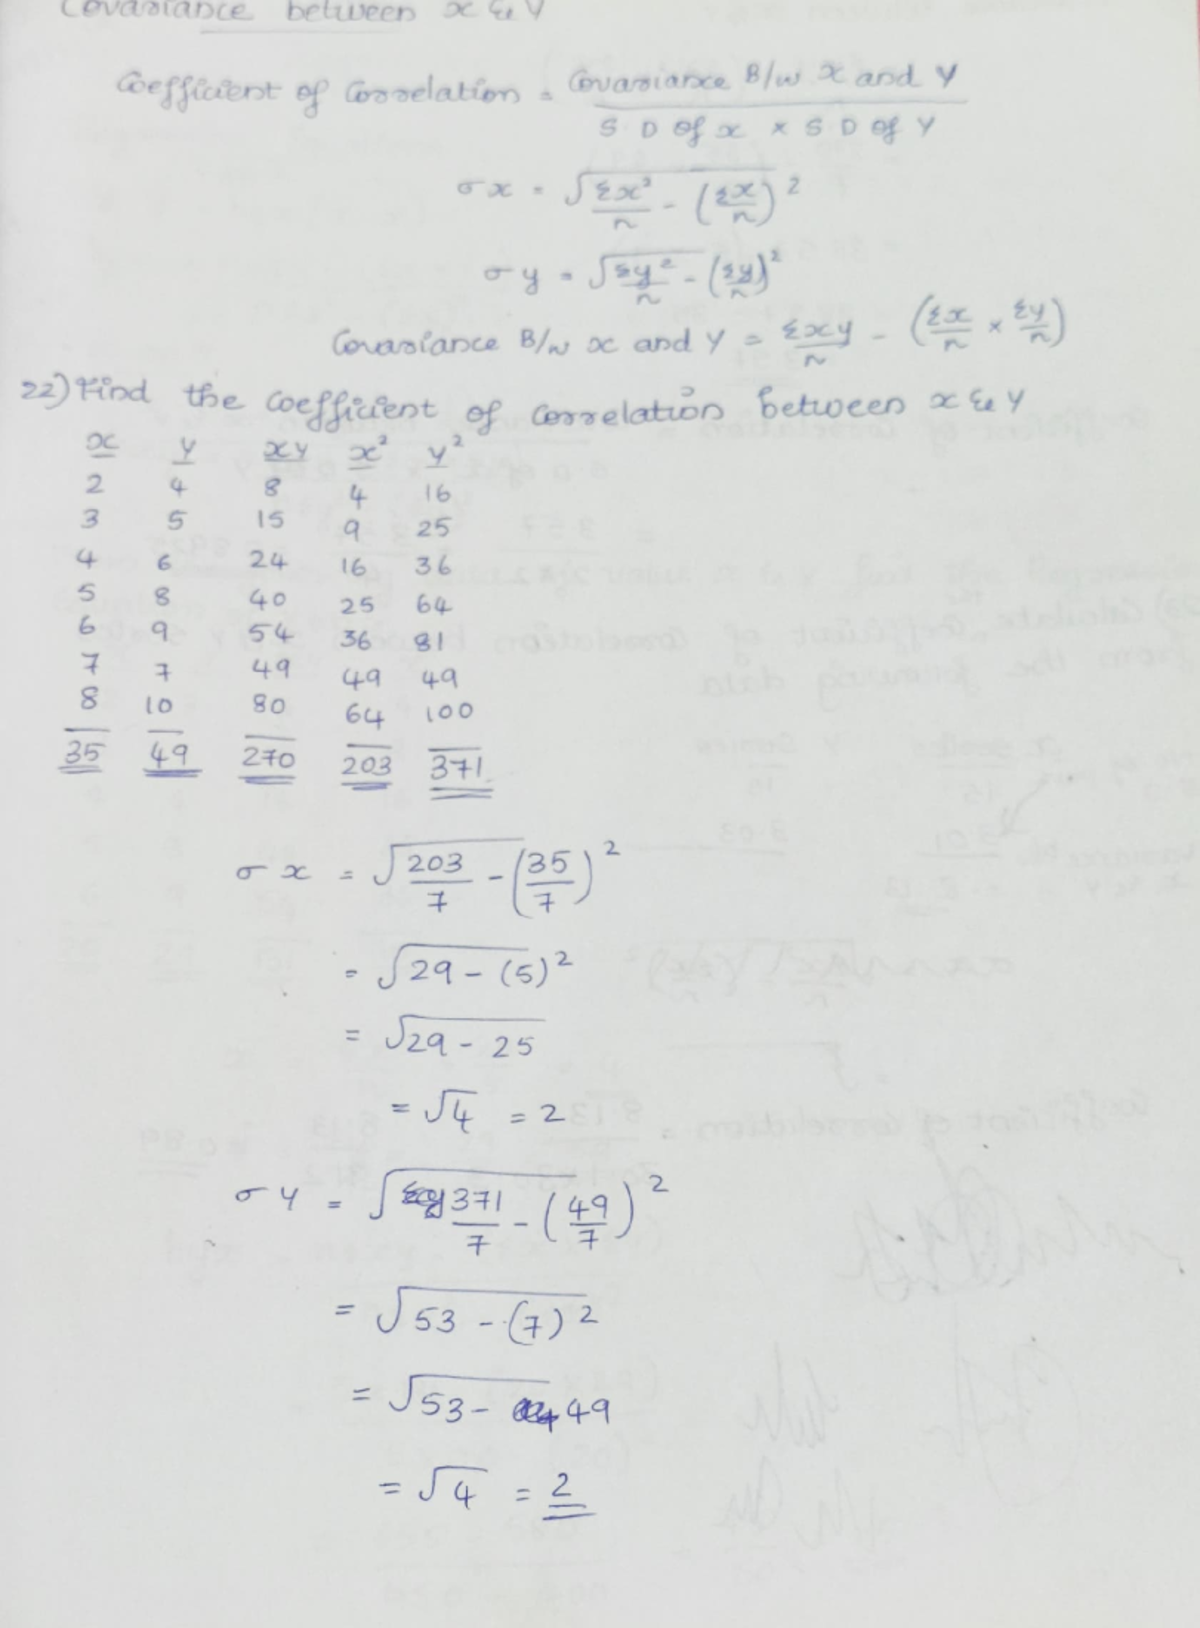 Covariance between x & Y
Coefficient of Correlation = Covariance B/w x and Y
S D of x × S D of Y
σx = √Σx²/n - (Σx/n)²
σy = √Σy²/n - (Σy/n)²
Covariance B/w x and Y = Σxy/n - (Σx/n × Σy/n)
22) Find the coefficient of correlation between x & Y
x Y xY x² Y²
2 4 8 4 16
3 5 15 9 25
4 6 24 16 36
5 8 40 25 64
6 9 54 36 81
7 7 49 49 49
8 10 80 64 100
35 49 270 203 371
σ x = √203/7 - (35/7)²
= √29 - (5)²
= √29 - 25
= √4 = 2
σ Y = √371/7 - (49/7)²
= √53 - (7)²
= √53 - 49
= √4 = 2